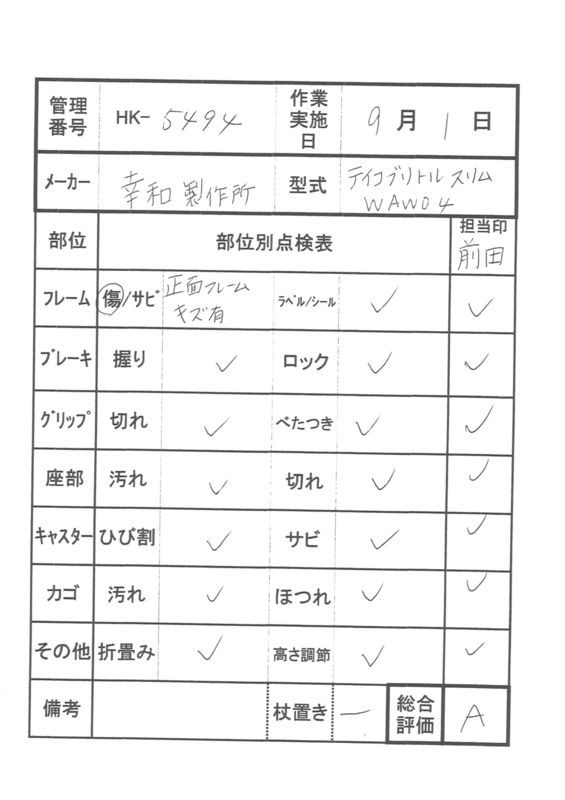 管理番号 HK- 5494 作業実施日 9月 1日
メーカー 幸和製作所 型式 テイコブリトルスリム WAW04
部位 部位別点検表 担当印 前田
フレーム 傷/サビ 正面フレームキズ有 ラベル/シール ✓ ✓
ブレーキ 握り ✓ ロック ✓ ✓
グリップ 切れ ✓ べたつき ✓ ✓
座部 汚れ ✓ 切れ ✓ ✓
キャスター ひび割 ✓ サビ ✓ ✓
カゴ 汚れ ✓ ほつれ ✓ ✓
その他 折畳み ✓ 高さ調節 ✓ ✓
備考 杖置き ー 総合評価 A